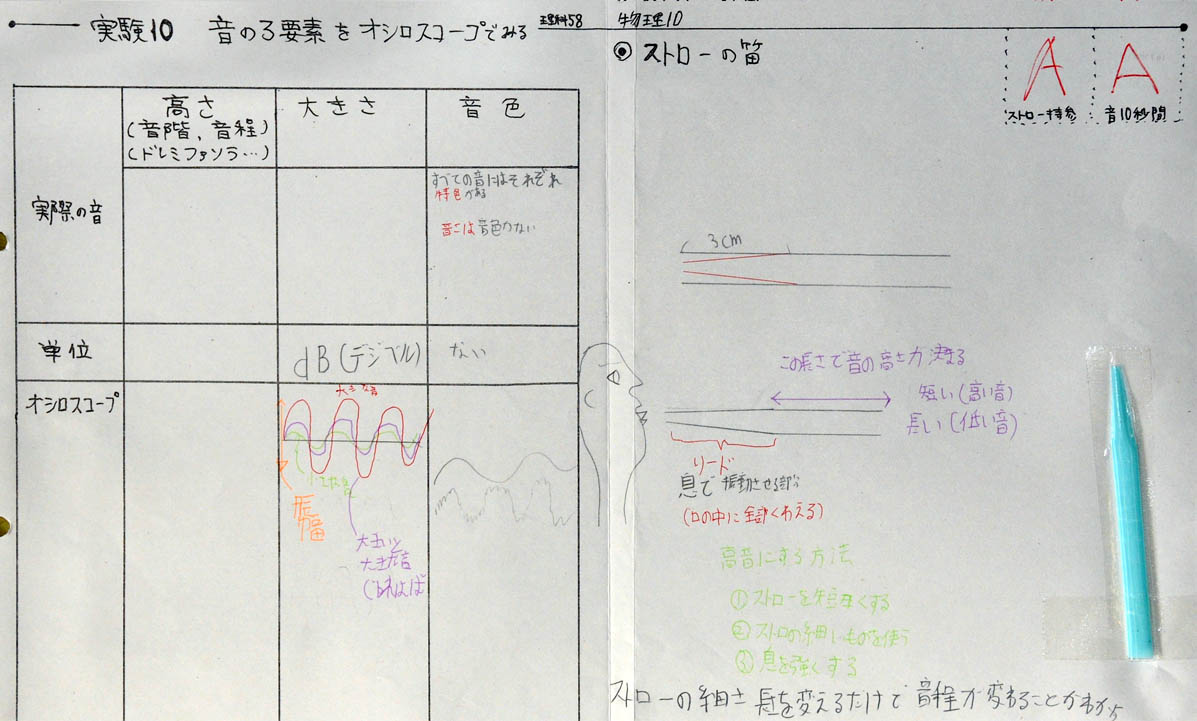 実験10 音の3要素をオシロスコープでみる
理科58
高さ
(音階、音程)
(ドレミファソラ…)
大きさ
音色
実際の音
すべての音にはそれぞれ
特色がある
音色のない
単位
dB(デシブル)
ない
オシロスコープ
大きな音
小さな音
振幅
大きな音
物理10
◉ ストローの笛
A
ストロー持参
A
音10秒間
3cm
この長さで音の高さが決まる
短い(高い音)
長い(低い音)
リード
息で振動させる部分
(口の中に全部くわえる)
高音にする方法
①ストローを短くする
②ストロの細いものを使う
③息を強くする
ストローの細さ 長を変えるだけで音程が変わることがわかった